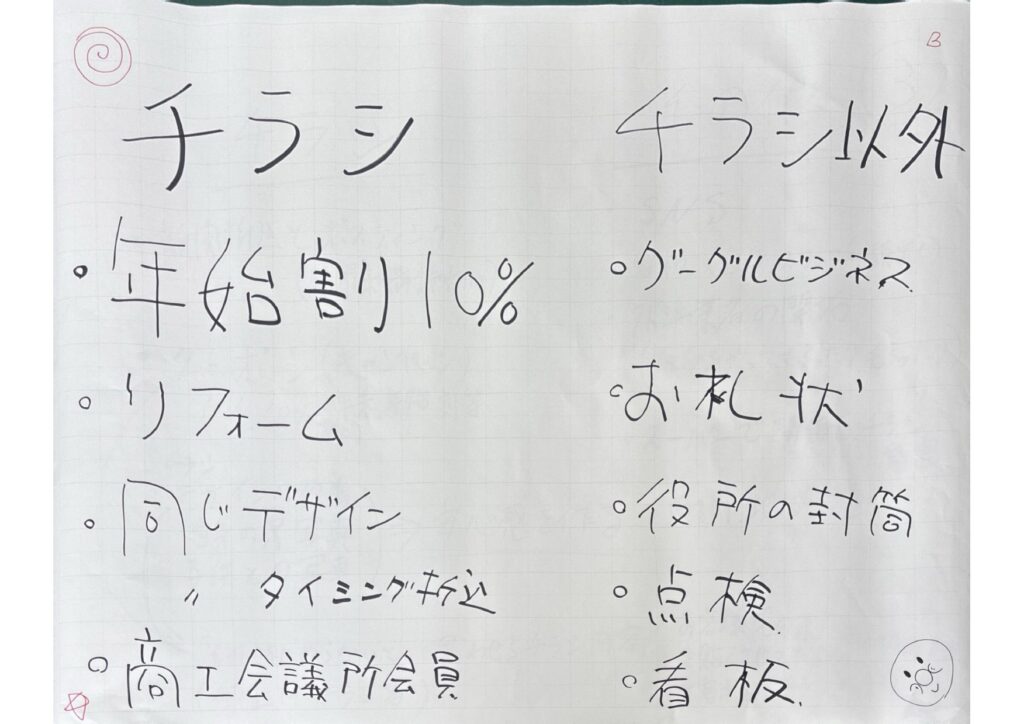 B
チラシ
・年始割り10%
○リフォーム
○同じデザイン
〃 タイミング折込
○商工会議所会員
チラシ以外
○グーグルビジネス
○お札状
○役所の封筒
○点検
○看板